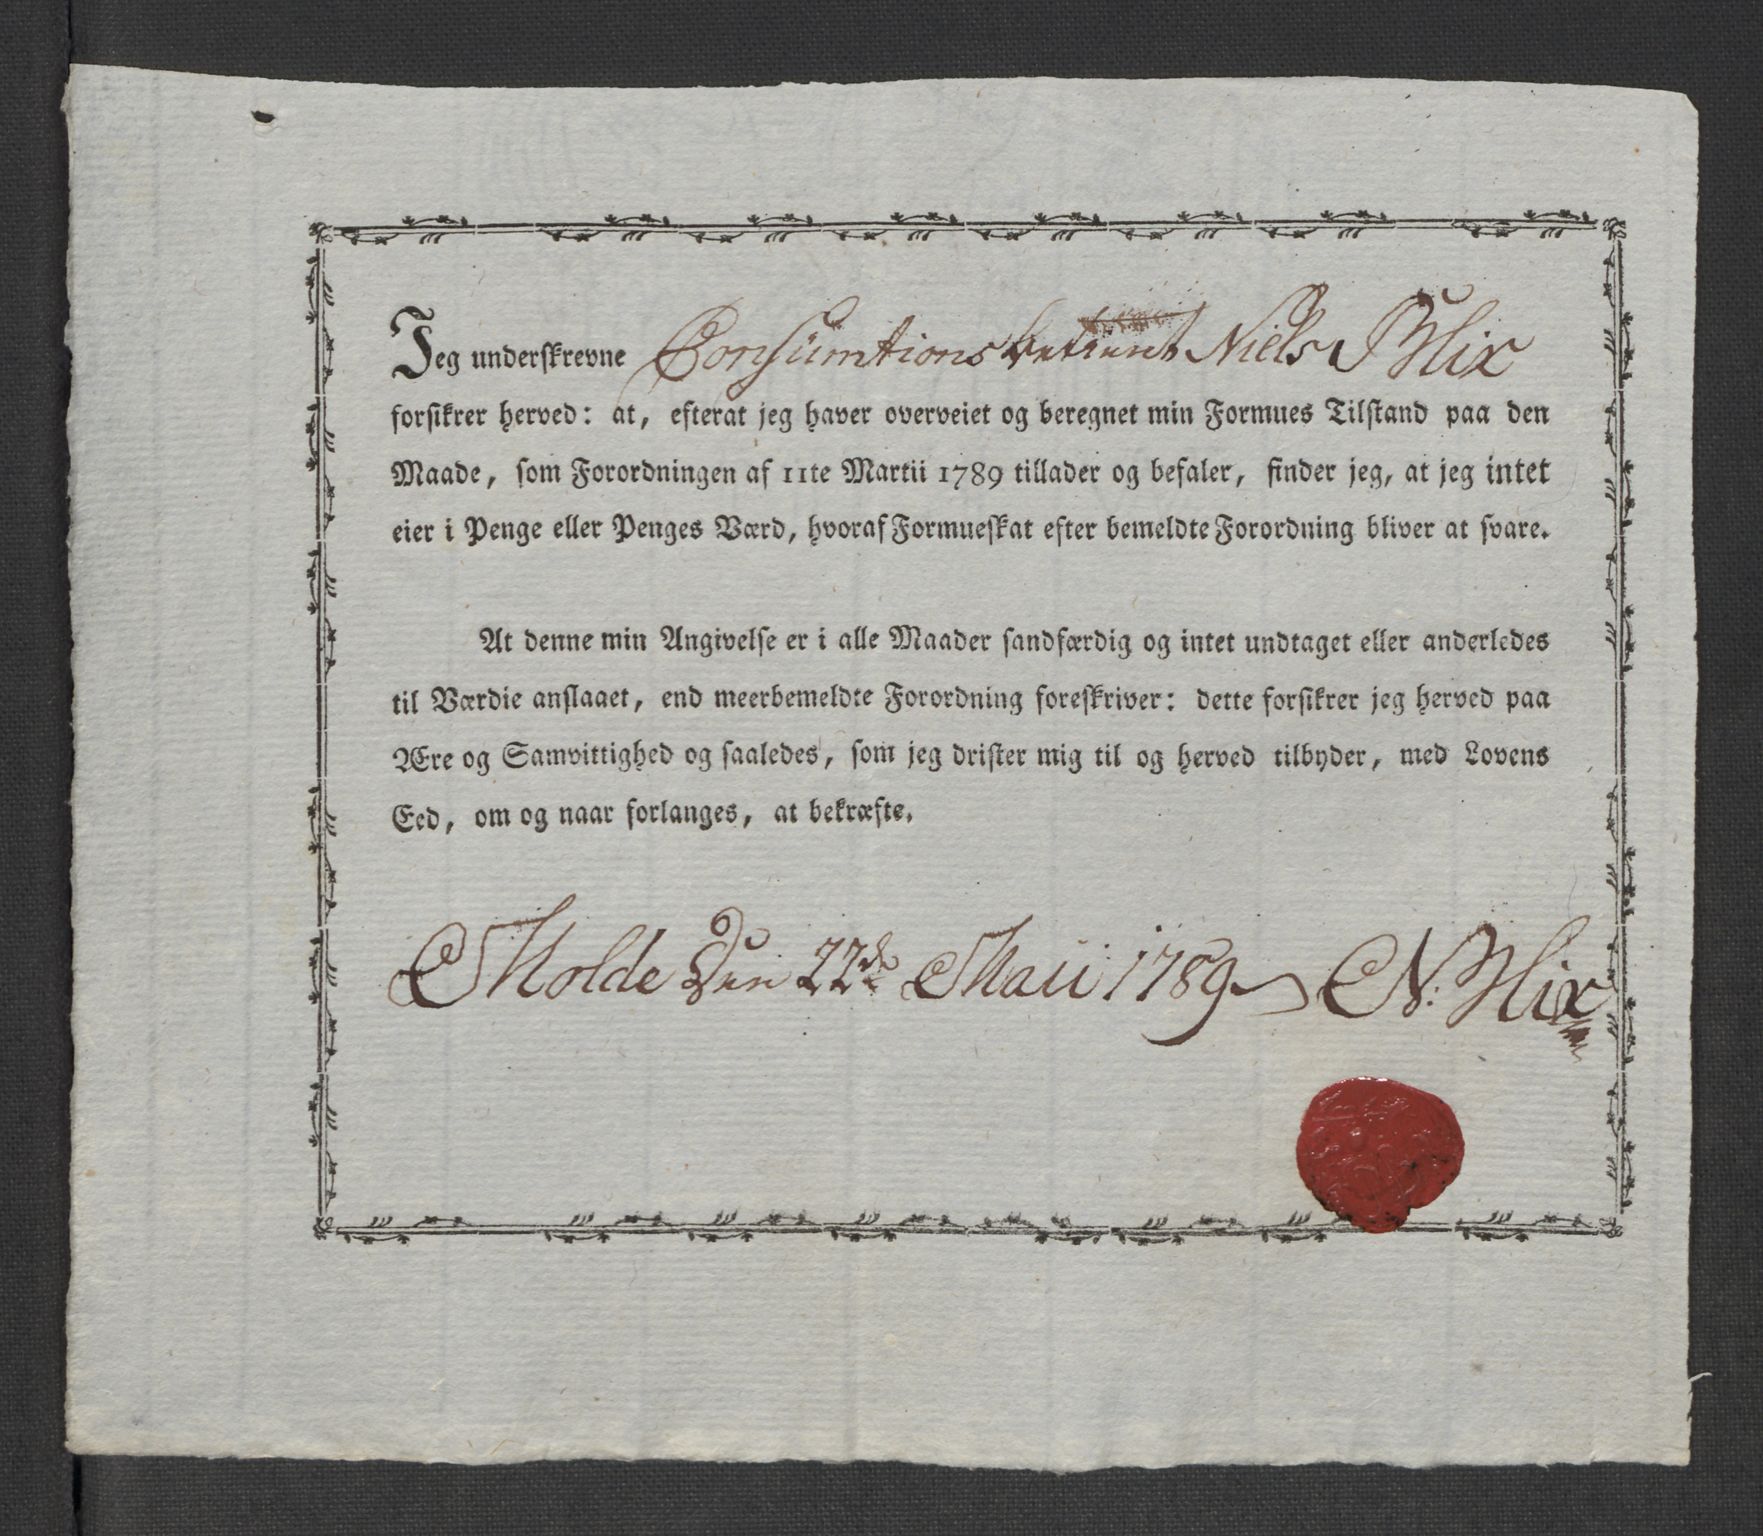 Jeg underskrevne Consumtionsbetient Niels Hix
forsikrer herved: at, efterat jeg haver overveiet og beregnet min Formues Tilstand paa den
Maade, som Forordningen af 11te Martii 1789 tillader og befaler, finder jeg, at jeg intet
eier i Penge eller Penges Værd, hvoraf Formueskat efter bemeldte Forordning bliver at svare.
At denne min Angivelse er i alle Maader sandfærdig og intet undtaget eller anderledes
til Værdie anslaaet, end meerbemeldte Forordning foreskriver: dette forsikrer jeg herved paa
Ære og Samvittighed og saaledes, som jeg drister mig til og herved tilbyder, med Lovens
Eed, om og naar forlanges, at bekræfte.
Molde Den 22de Maii 1789 N: Hix